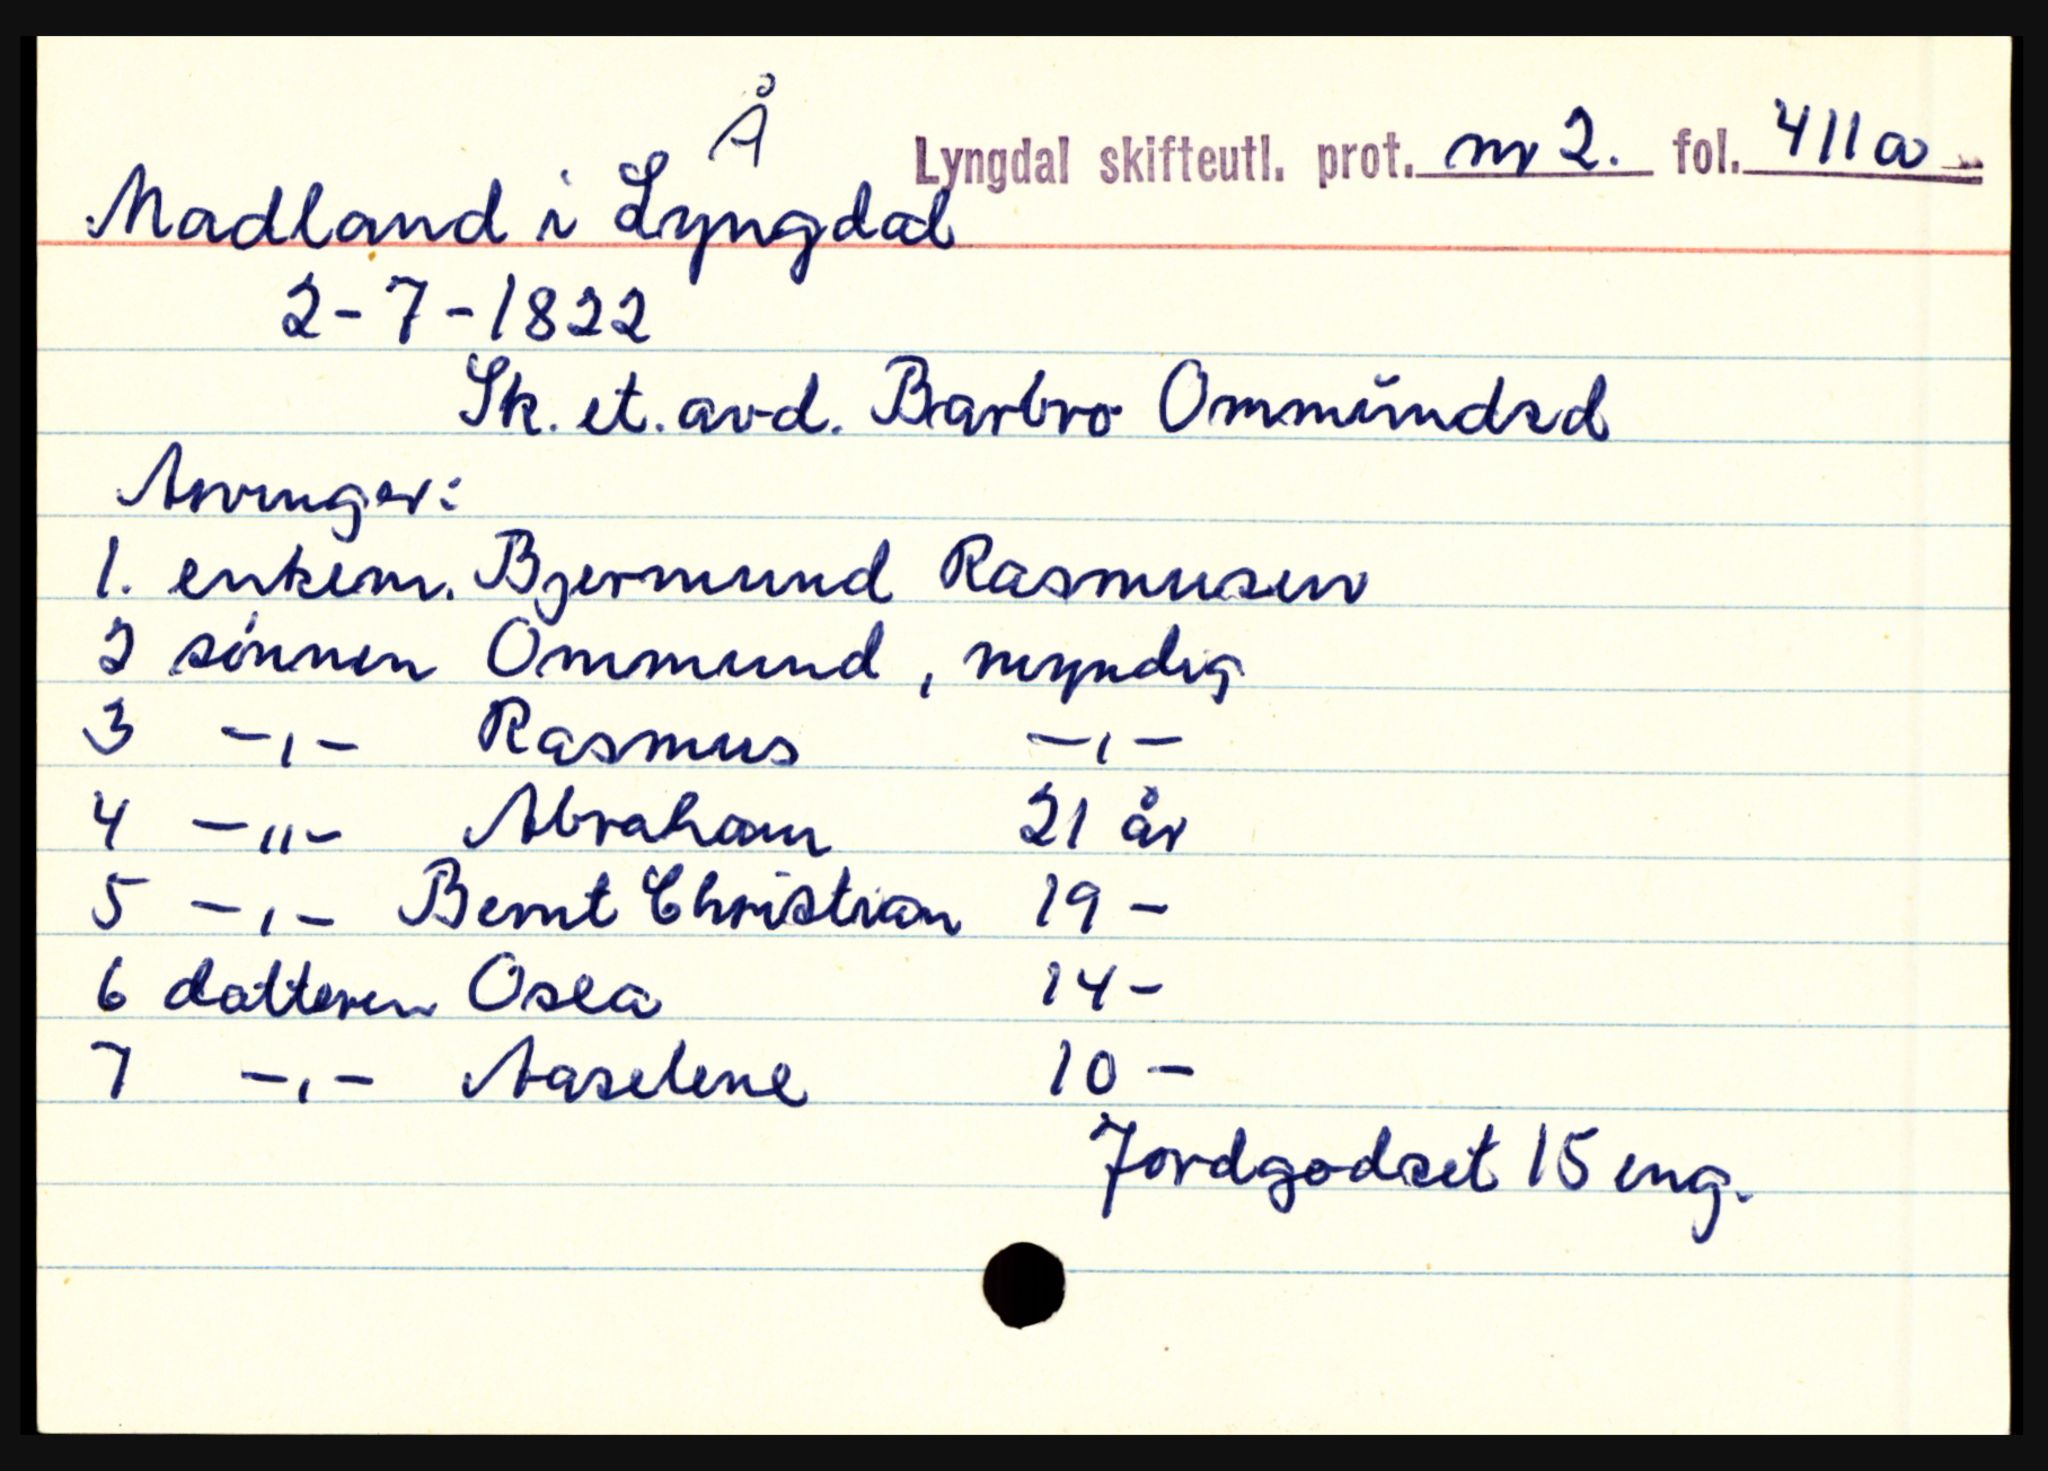 Å
Lyngdal skifteutl. prot. nr 2. fol. 411a
Madland i Lyngdal
2-7-1822
Sk. et. avd. Barbro Ommŭndsd
Arvinger:
1. enkem. Bjermund Rasmusen
2 sönnen Ommund, myndig
3 -,- Rasmus -,-
4 -,,- Abraham 21 år
5 -,- Bernt Christian 19 -
6 datteren Osea 14 -
7 -,- Aaselene 10 -
Jordgodset 15 eng.